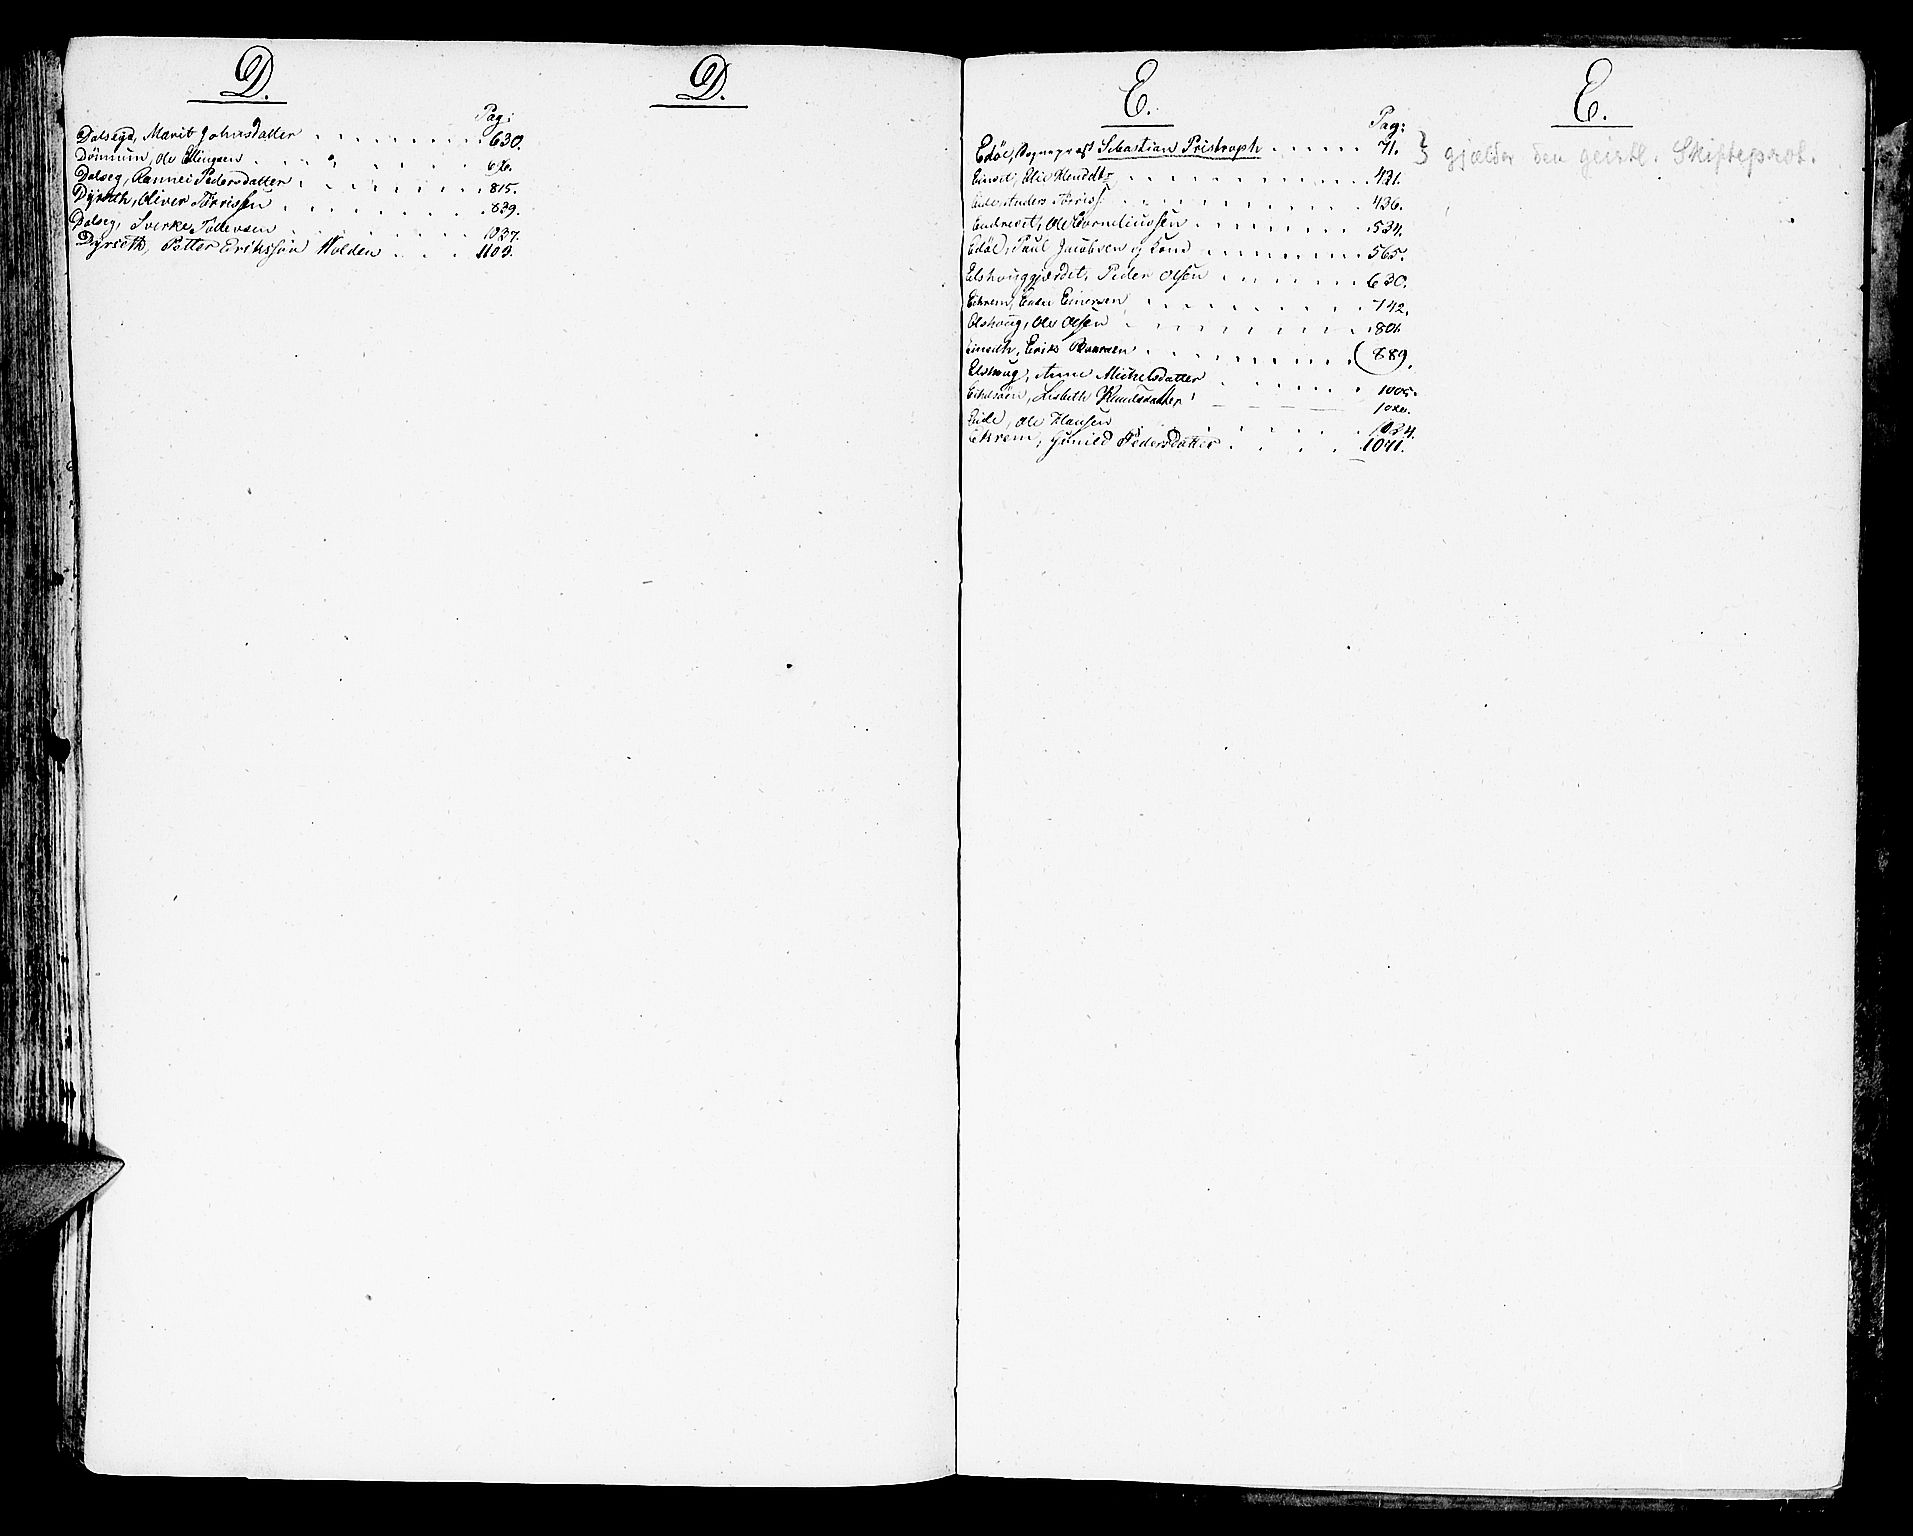 D.
D.
Pag:
Dalsegd, Marit Johnsdatter 630.
Dönnum, Ole Ellingsen
Dalseg, Rannei Pedersdatter 815.
Dÿrseth, Oliver Törrissen 839.
Dalseg, Sverke Tollevsen 1037.
Dyrseth, Petter Eriksson Holden 1103.
E.
E.
Pag:
Edöe, Sognepræst Sebastian Pristroph 71. } gjælder den geistl. Skifteprot.
Einset, Elie Knuddtr 421.
Eide, Anders Törriss. 436.
Endreset, Ole Corneliussen 534.
Edöe, Paul Jacobsen og Kone 565.
Elshouggjærdet, Peder Olsen 630.
Eikrem, Endre Einersen 742.
Elshoug, Ole Olsen 801.
Einseth, Erik 889.
Elshaug, Anne Michelsdatter 1005.
Lisbeth Knudsdatter
Eide, Ole Hansen 1024.
Eikrem, Gunild Pedersdatter 1071.